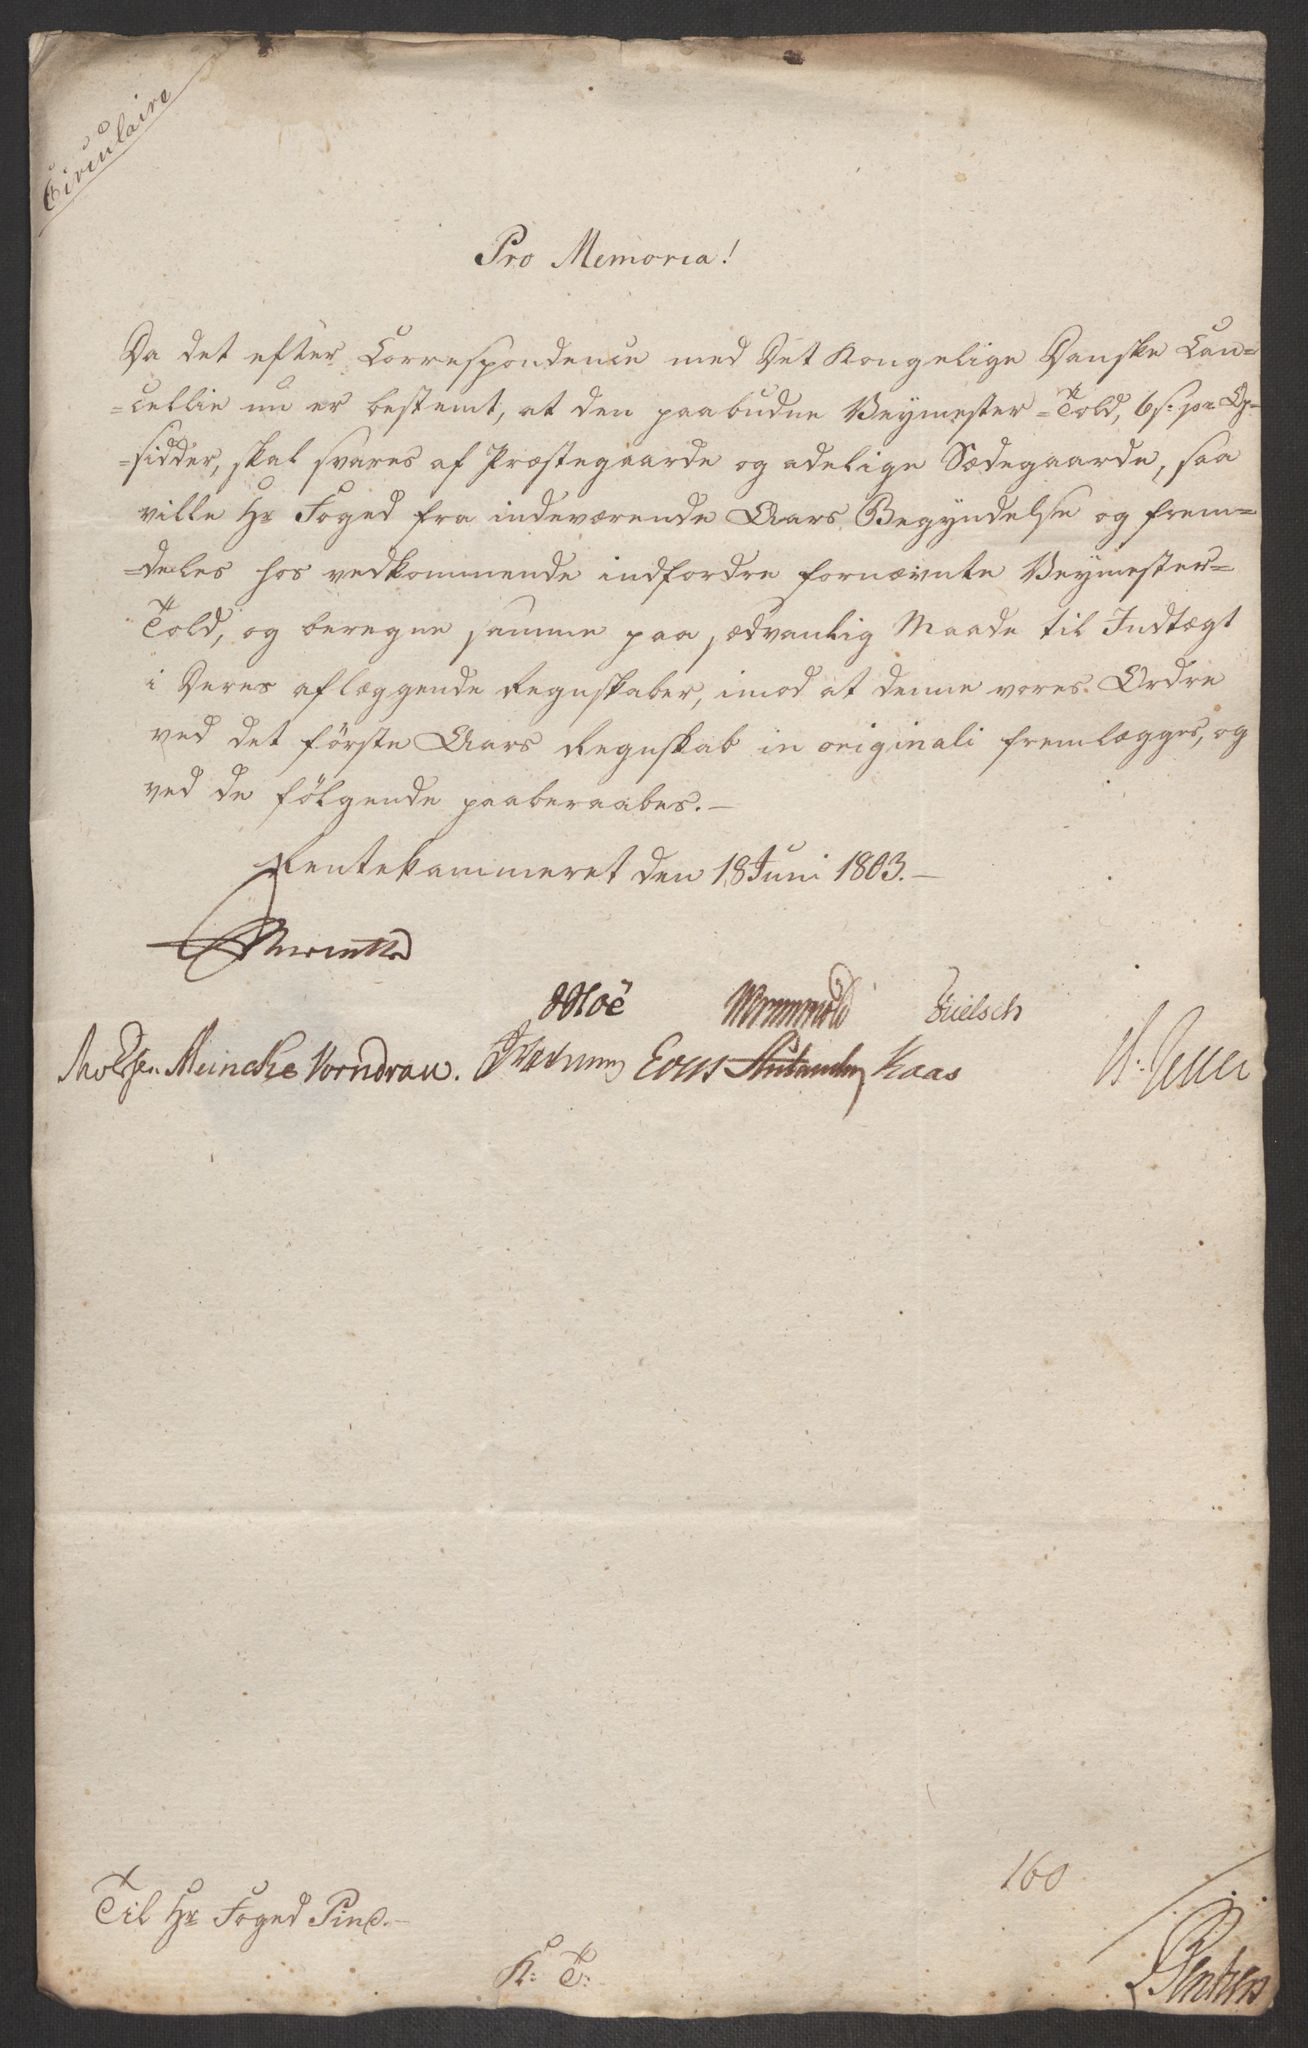 Circulaire
Pro Memoria!
Da det efter Correspondence med Det Kongelige Danske Can=
=cellie nu er bestemt, at den paabudne Veymester=Told, 6 s: pr Op=
=sidder, skal svares af Præstegaarde og adelige Sædegaarde, saa
ville Hr Foged fra indeværende Aars Begyndelse og frem=
=deles hos vedkommende indfordre fornævnte Veymester=
Told, og beregne samme paa sædvanlig Maade til Indtægt
i Deres aflæggende Regnskaber, imod at denne vores Ordre
ved det første Aars Regnskab in originali fremlægges, og
ved de følgende paaberaabes.—
Rentekammeret den 18 Juni 1803.—
Meincke Vorndran. Kaas
160
Til Hr Foged Pind.—
K: T: